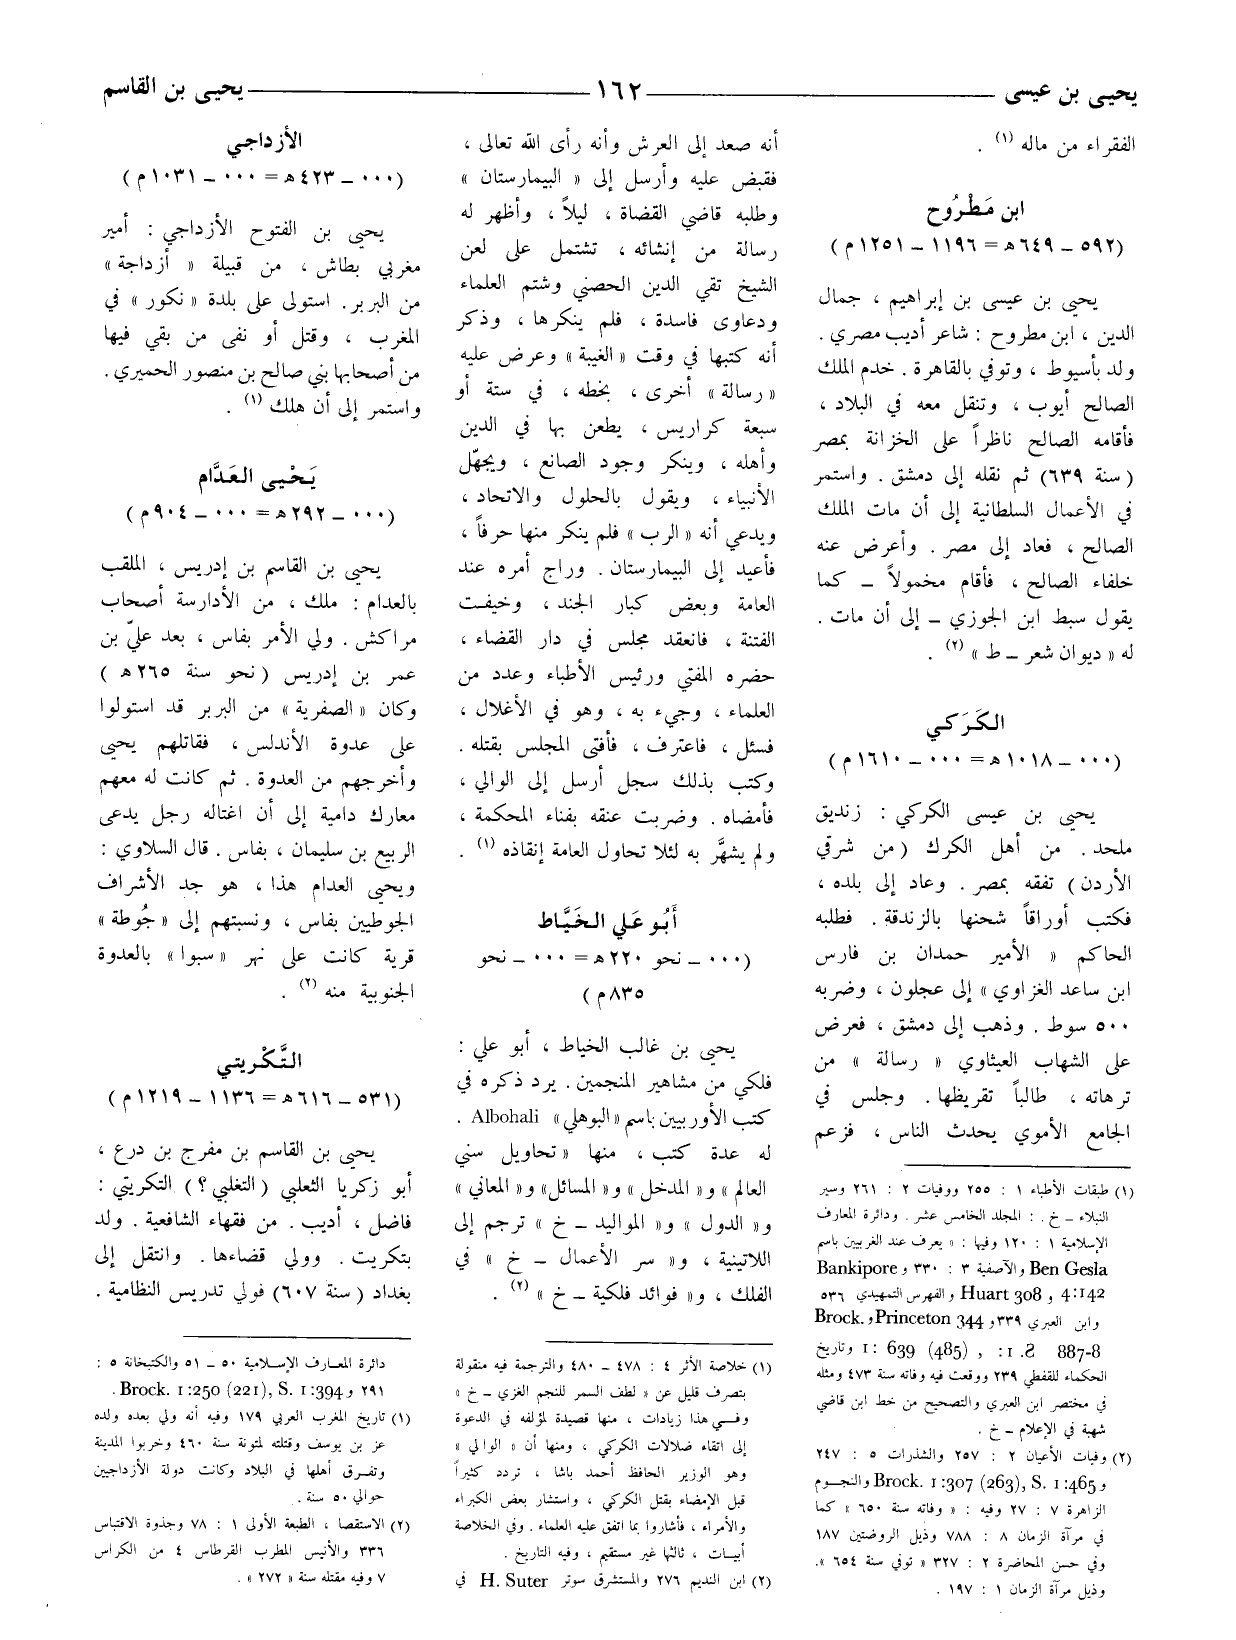 يحيى بن عيسى ــــ ١٦٢ ــــ يحيى بن القاسم
الفقراء من ماله (١) .
ابن مَطْرُوح
(٥٩٢ ــ ٦٤٩ ه‍ = ١١٩٦ ــ ١٢٥١ م)
يحيى بن عيسى بن إبراهيم ، جمال
الدين ، ابن مطروح : شاعر أديب مصري .
ولد بأسيوط ، وتوفي بالقاهرة . خدم الملك
الصالح أيوب ، وتنقل معه في البلاد ،
فأقامه الصالح ناظراً على الخزانة بمصر
(سنة ٦٣٩) ثم نقله إلى دمشق . واستمر
في الأعمال السلطانية إلى أن مات الملك
الصالح ، فعاد إلى مصر . وأعرض عنه
خلفاء الصالح ، فأقام مخمولاً ــ كما
يقول سبط ابن الجوزي ــ إلى أن مات .
له « ديوان شعر ــ ط » (٢) .
الكَرَكي
(٠٠٠ ــ ١٠١٨ ه‍ = ٠٠٠ ــ ١٦١٠ م)
يحيى بن عيسى الكركي : زنديق
ملحد . من أهل الكرك (من شرقي
الأردن) تفقه بمصر . وعاد إلى بلده ،
فكتب أوراقاً شحنها بالزندقة . فطلبه
الحاكم « الأمير حمدان بن فارس
ابن ساعد الغزاوي » إلى عجلون ، وضربه
٥٠٠ سوط . وذهب إلى دمشق ، فعرض
على الشهاب العيثاوي « رسالة » من
ترهاته ، طالباً تقريظها . وجلس في
الجامع الأموي يحدث الناس ، فزعم
(١) طبقات الأطباء ١ : ٢٥٥ ووفيات ٢ : ٢٦١ وسير
النبلاء ــ خ . : المجلد الخامس عشر . ودائرة المعارف
الإسلامية ١ : ١٢٠ وفيها : « يعرف عند الغربيين باسم
Ben Gesla والآصفية ٣ : ٣٣٠ و Bankipore
4:142 و Huart 308 والفهرس التمهيدي ٥٣٦
وابن العبري ٣٣٩ و Princeton 344 و Brock.
1: 639 (485) , S. 1: 887-8 وتاريخ
الحكماء للقفطي ٢٣٩ ووقعت فيه وفاته سنة ٤٧٣ ومثله
في مختصر ابن العبري والتصحيح من خط ابن قاضي
شهبة في الإعلام ــ خ .
(٢) وفيات الأعيان ٢ : ٢٥٧ والشذرات ٥ : ٢٤٧
و Brock. 1:307 (263), S. 1:465 والنجوم
الزاهرة ٧ : ٢٧ وفيه : « وفاته سنة ٦٥٠ » كما
في مرآة الزمان ٨ : ٧٨٨ وذيل الروضتين ١٨٧
وفي حسن المحاضرة ٢ : ٣٢٧ « توفي سنة ٦٥٤ ».
وذيل مرآة الزمان ١ : ١٩٧ .
أنه صعد إلى العرش وأنه رأى الله تعالى ،
فقبض عليه وأرسل إلى « البيمارستان »
وطلبه قاضي القضاة ، ليلاً ، وأظهر له
رسالة من إنشائه ، تشتمل على لعن
الشيخ تقي الدين الحصني وشتم العلماء
ودعاوى فاسدة ، فلم ينكرها ، وذكر
أنه كتبها في وقت « الغيبة » وعرض عليه
« رسالة » أخرى ، بخطه ، في ستة أو
سبعة كراريس ، يطعن بها في الدين
وأهله ، وينكر وجود الصانع ، ويجهّل
الأنبياء ، ويقول بالحلول والاتحاد ،
ويدعي أنه « الرب » فلم ينكر منها حرفاً ،
فأعيد إلى البيمارستان . وراج أمره عند
العامة وبعض كبار الجند ، وخيفت
الفتنة ، فانعقد مجلس في دار القضاء ،
حضره المفتي ورئيس الأطباء وعدد من
العلماء ، وجيء به ، وهو في الأغلال ،
فسئل ، فاعترف ، فأفتى المجلس بقتله .
وكتب بذلك سجل أرسل إلى الوالي ،
فأمضاه . وضربت عنقه بفناء المحكمة ،
ولم يشهَّر به لئلا تحاول العامة إنقاذه (١) .
أَبُو عَلي الخَيَّاط
(٠٠٠ ــ نحو ٢٢٠ ه‍ = ٠٠٠ ــ نحو
٨٣٥ م)
يحيى بن غالب الخياط ، أبو علي :
فلكي من مشاهير المنجمين . يرد ذكره في
كتب الأوربيين باسم « البوهلي » Albohali .
له عدة كتب ، منها « تحاويل سني
العالم » و« المدخل » و« المسائل » و« المعاني »
و« الدول » و« المواليد ــ خ » ترجم إلى
اللاتينية ، و« سر الأعمال ــ خ » في
الفلك ، و« فوائد فلكية ــ خ » (٢) .
(١) خلاصة الأثر ٤ : ٤٧٨ ــ ٤٨٠ والترجمة فيه منقولة
بتصرف قليل عن « لطف السمر للنجم الغزي ــ خ »
وفي هذا زيادات ، منها قصيدة لمؤلفه في الدعوة
إلى اتقاء ضلالات الكركي ، ومنها أن « الوالي »
وهو الوزير الحافظ أحمد باشا ، تردد كثيراً
قبل الإمضاء بقتل الكركي ، واستشار بعض الكبراء
والأمراء ، فأشاروا بما اتفق عليه العلماء . وفي الخلاصة
أبيات ، ثالثها غير مستقيم ، وفيه التاريخ .
(٢) ابن النديم ٢٧٦ والمستشرق سوتر H. Suter في
الأزداجي
(٠٠٠ ــ ٤٢٣ ه‍ = ٠٠٠ ــ ١٠٣١ م)
يحيى بن الفتوح الأزداجي : أمير
مغربي بطاش ، من قبيلة « أزداجة »
من البربر . استولى على بلدة « نكور » في
المغرب ، وقتل أو نفى من بقي فيها
من أصحابها بني صالح بن منصور الحميري .
واستمر إلى أن هلك (١) .
يَحْيى العَدَّام
(٠٠٠ ــ ٢٩٢ ه‍ = ٠٠٠ ــ ٩٠٤ م)
يحيى بن القاسم بن إدريس ، الملقب
بالعدام : ملك ، من الأدارسة أصحاب
مراكش . ولي الأمر بفاس ، بعد عليّ بن
عمر بن إدريس (نحو سنة ٢٦٥ ه‍)
وكان « الصفرية » من البربر قد استولوا
على عدوة الأندلس ، فقاتلهم يحيى
وأخرجهم من العدوة . ثم كانت له معهم
معارك دامية إلى أن اغتاله رجل يدعى
الربيع بن سليمان ، بفاس . قال السلاوي :
ويحيى العدام هذا ، هو جد الأشراف
الجوطيين بفاس ، ونسبتهم إلى « جُوطة »
قرية كانت على نهر « سبوا » بالعدوة
الجنوبية منه (٢) .
التَّكْريتي
(٥٣١ ــ ٦١٦ ه‍ = ١١٣٦ ــ ١٢١٩ م)
يحيى بن القاسم بن مفرج بن درع ،
أبو زكريا الثعلبي (التغلبي ؟) التكريتي :
فاضل ، أديب . من فقهاء الشافعية . ولد
بتكريت . وولي قضاءها . وانتقل إلى
بغداد (سنة ٦٠٧) فولي تدريس النظامية .
دائرة المعارف الإسلامية ٥٠ ــ ٥١ والكتبخانة ٥ :
٢٩١ و Brock. 1:250 (221), S. 1:394.
(١) تاريخ المغرب العربي ١٧٩ وفيه أنه ولي بعده ولده
عز بن يوسف وقتلته لمتونة سنة ٤٦٠ وخربوا المدينة
وتفرق أهلها في البلاد وكانت دولة الأزداجيين
حوالي ٥٠ سنة .
(٢) الاستقصا ، الطبعة الأولى ١ : ٧٨ وجذوة الاقتباس
٣٣٦ والأنيس المطرب القرطاس ٤ من الكراس
٧ وفيه مقتله سنة « ٢٧٢ » .